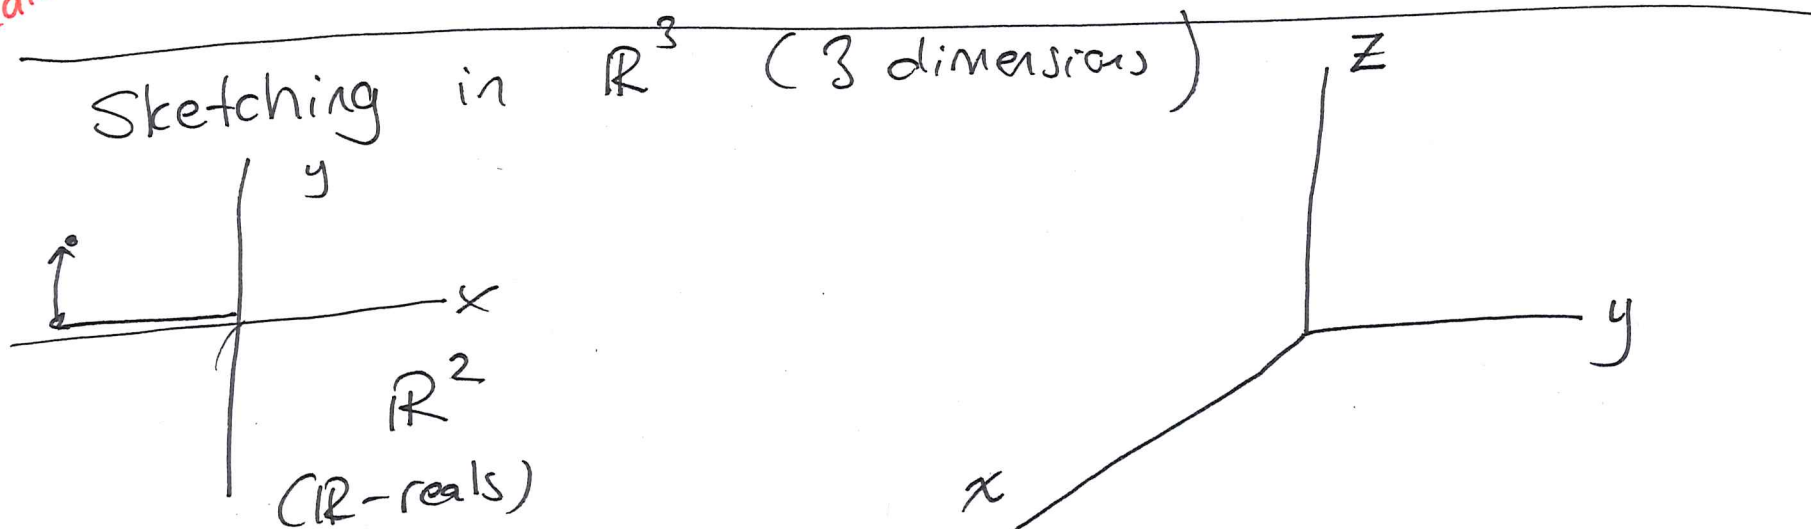 Sketching in ℝ³ (3 dimensions)
y
x
ℝ²
(ℝ-reals)
z
y
x